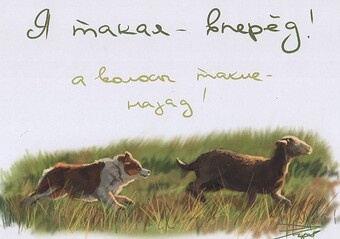 Я такая - вперёд!
а волосы такие -
назад!